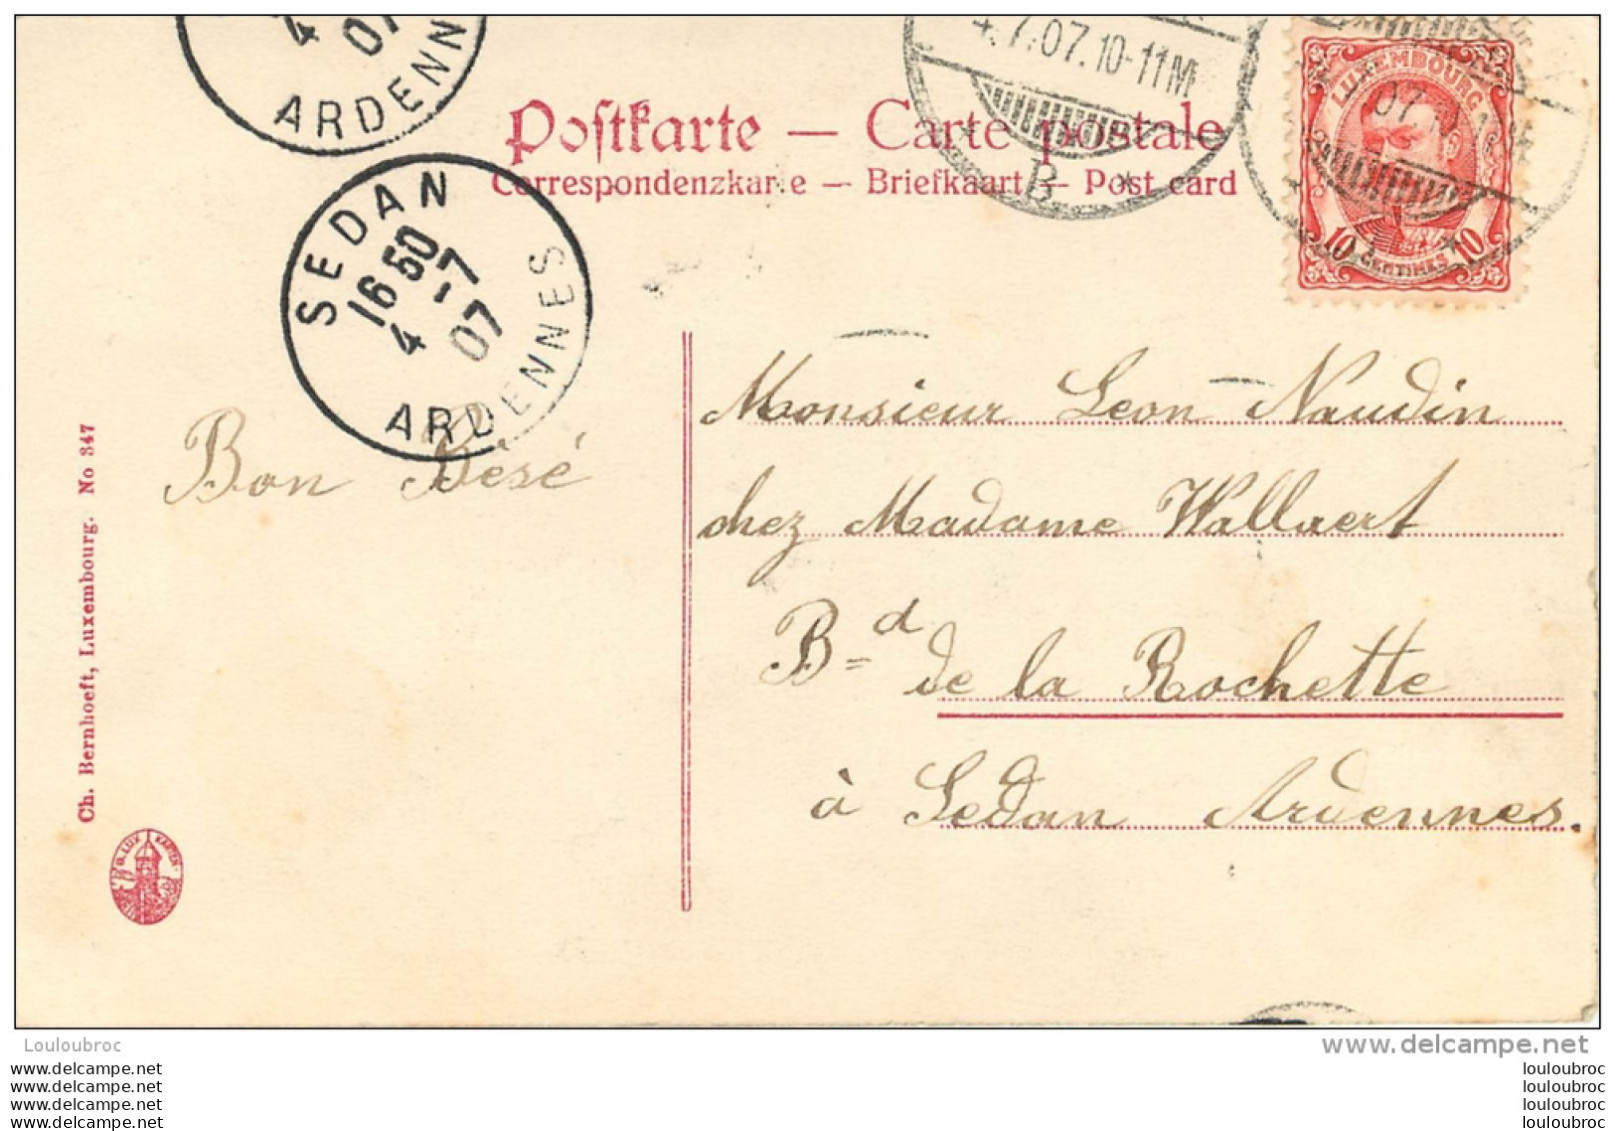 4
07
ARDENN
4.7.07.10-11M
B.
LUXEMBOURG
10 CENTIMES 10
Postkarte — Carte postale
Correspondenzkarte — Briefkaart — Post card
SEDAN
16 50
4 - 7
07
ARDENNES
Monsieur Leon Naudin
Bon Bésé
chez Madame Wallaert
Bd de la Rochette
à Sedan Ardennes.
Ch. Bernhoeft, Luxembourg. No 347
Louloubroc
www.delcampe.net
www.delcampe.net
www.delcampe.net
www.delcampe.net
www.delcampe.net
louloubroc
louloubroc
louloubroc
louloubroc